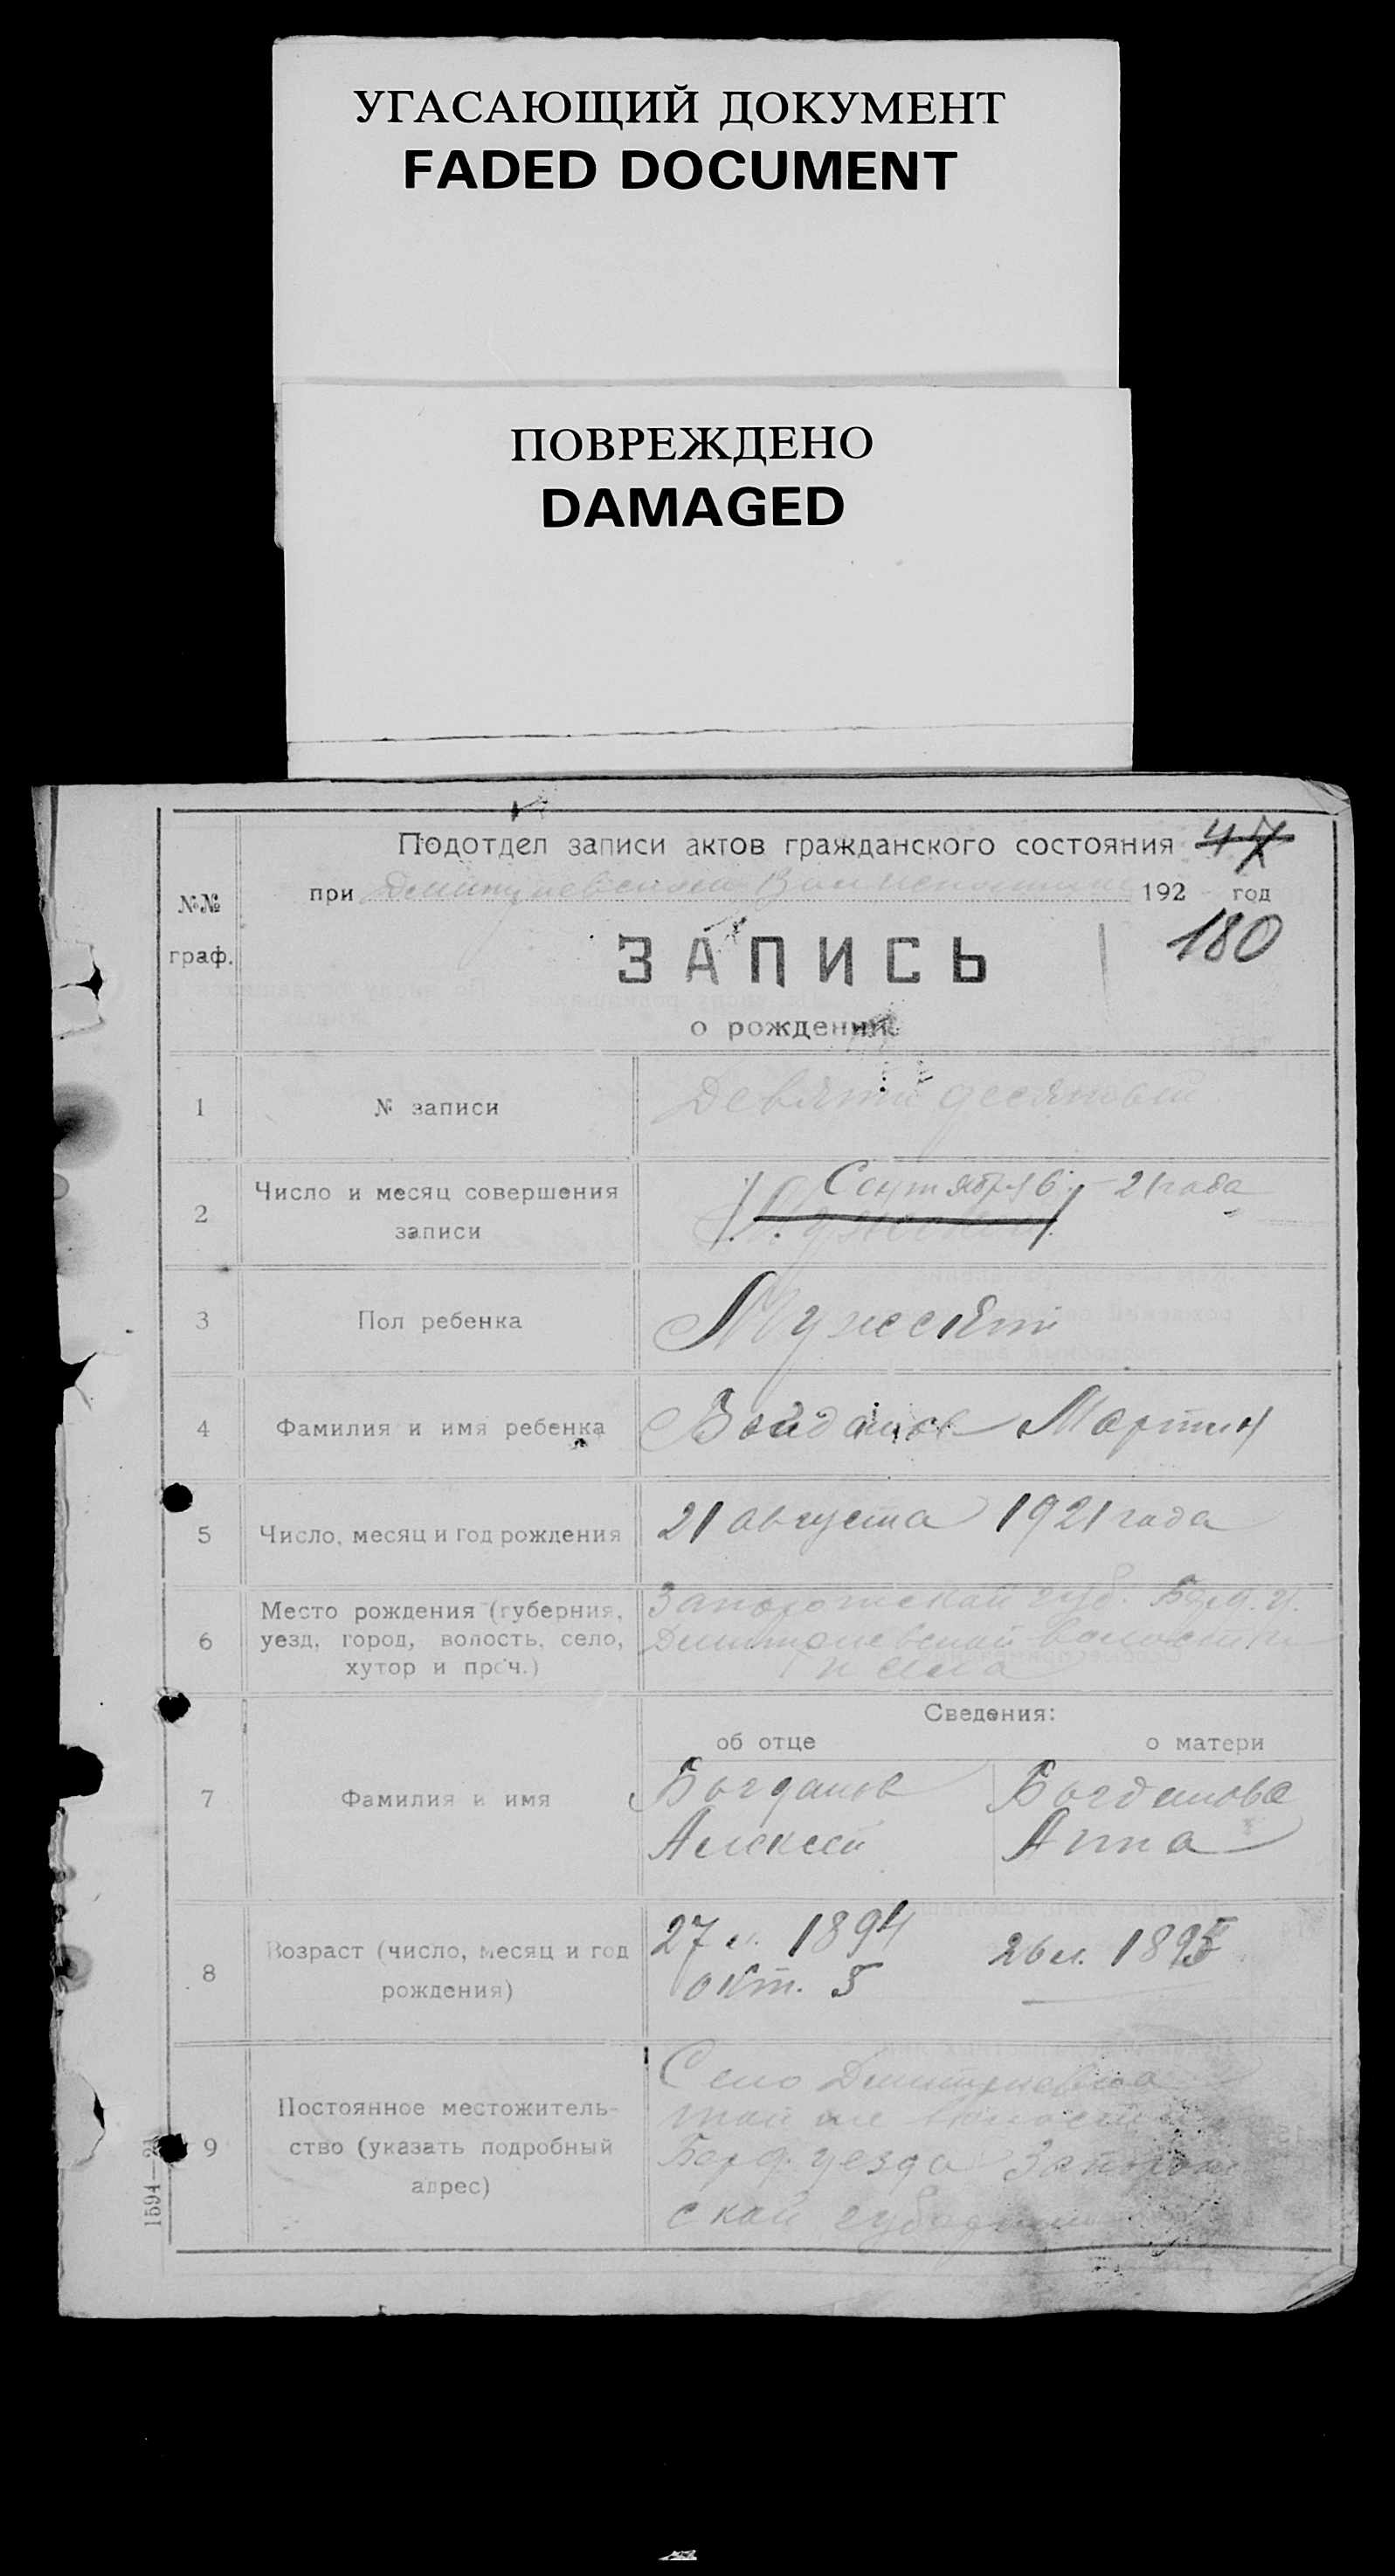 УГАСАЮЩИЙ ДОКУМЕНТ
FADED DOCUMENT
ПОВРЕЖДЕНО
DAMAGED
Подотдел записи актов гражданского состояния 47
при 192 год
№№ граф.
180
ЗАПИСЬ
о рождении
1 № записи Девяти десятый
2 Число и месяц совершения Сентября 6 - 21 года
записи
3 Пол ребенка Мужской
4 Фамилия и имя ребенка Богданов Мартин
5 Число, месяц и год рождения 21 августа 1921 года
6 Место рождения (губерния, Запорожской губ. Берд. у.
уезд, город, волость, село, волости
хутор и проч.) села
Сведения:
об отце о матери
7 Фамилия и имя Богданов Богданова
Алексей Анна
8 Возраст (число, месяц и год 27 л. 1894 26 л. 1895
рождения) окт. 5
9 Постоянное местожитель- Село
ство (указать подробный той же волости
адрес) Берд. уезда Запорож
ской губернии
1594—21